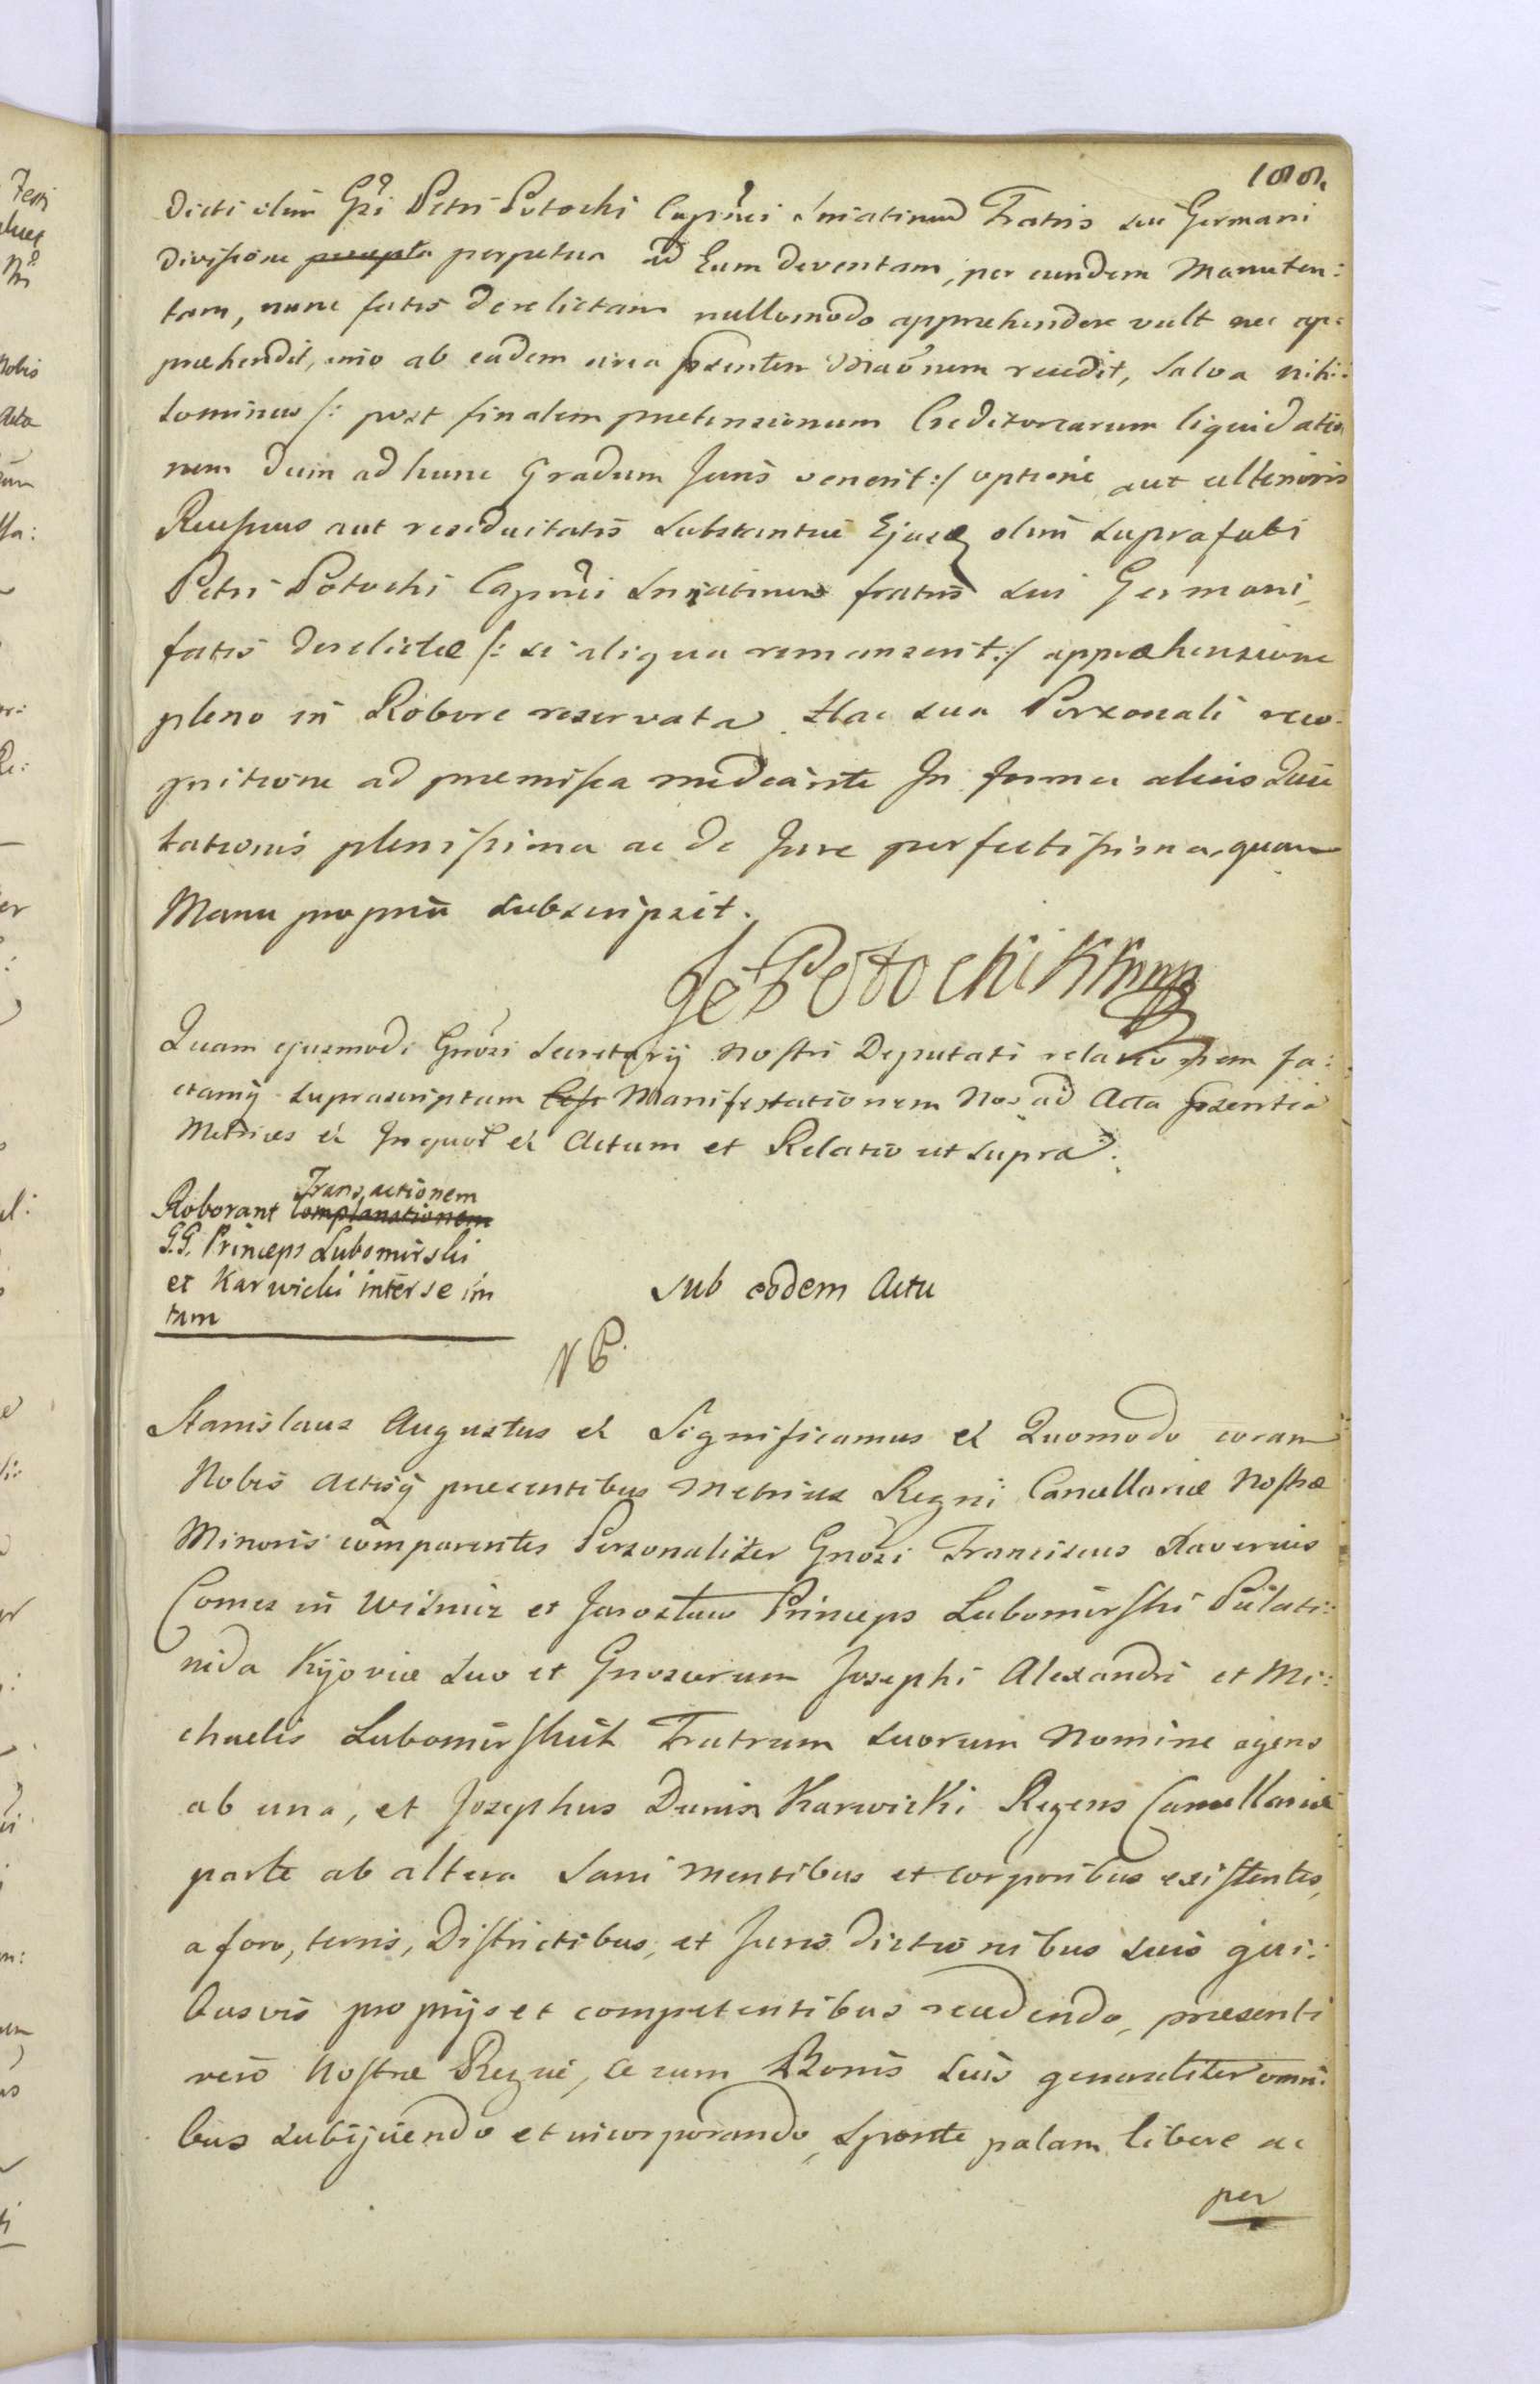 188.
Dicti olim Gsi Petri Potocki Capnei Sniatinen Fratris sui Germani
divisione perpetua ad Eum deventam, per eundem Manuten:
tam, nunc fatis derelictam nullomodo apprehendere vult nec ap:
prehendit, imo ab eadem circa psentem recedit, Salva nihi:
lominus /: post finalem pretensionum Creditorearum liquidatio
nem dum ad hunc Gradum Juris venerit :/ optione aut ulterioris
Recessus aut residuitatis Substantiae Ejusq olim suprafati
Petri Potocki Capnei Sniatinen fratris sui Germani,
fatis derelictae /: si aliqua remanserit :/ appraehensione
pleno in Robore reservata. Hac sua Personali reco:
gnitione ad premissa mediante In forma alias Quie
tationis plenissima ac de Jure perfectissima, quam
Manu propria subscripsit.
Potocki KK mp
Quam ejusmodi Gnosi Secretarij Nostri Deputati relationem fa:
ctamq suprascriptam Manifestationem Nos ad Acta psentia
Metrices et Inquor et Actum et Relatio ut supra.
Transactionem
Roborant Complanationem
G.G. Princeps Lubomirski
et Karwicki inter se im
tam
Sub eodem Actu
NB.
Stanislaus Augustus et Significamus et Quomodo coram
Nobis Actisq presentibus Metrices Regni Cancellariae Nostrae
Minoris comparentes Personaliter Gnosi Franciscus Xaverius
Comes in Wisnicz et Jaroslaw Princeps Lubomirski Palati:
nida Kijoviae Suo et Gnosorum Josephi Alexandri et Mi:
chaelis Lubomirskich Fratrum suorum Nomine agens
ab una, et Josephus Dunin Karwicki Regens Cancellariae
parte ab altera Sani mentibus et corporibus existentes,
a foro, terris, Districtibus, et Juris dictionibus suis qui:
busvis proprijs et competentibus recedendo, praesenti
vero Nostrae Regiae, se cum Bonis Suis generaliter omni:
bus subijciendo et incorporando, Sponte palam libere ac
per